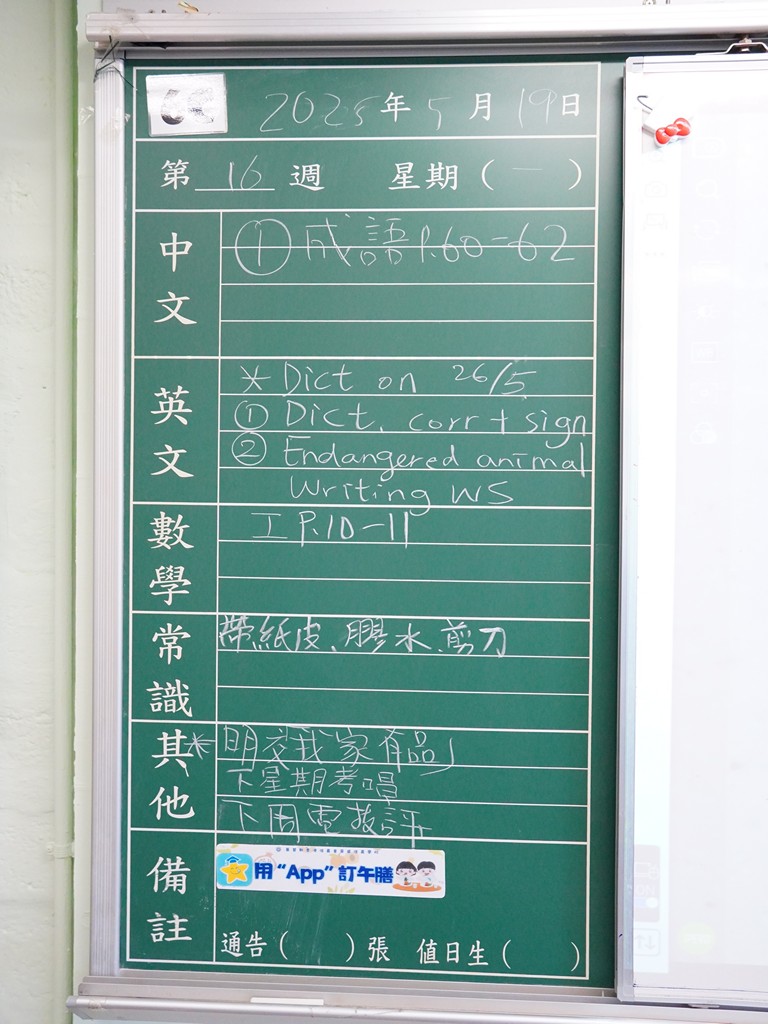 2025年5月19日
第16週 星期(一)
中文
① 成語P.60-62
英文
* Dict on 26/5
① Dict. corr + sign
② Endangered animal
Writing WS
數學
工 P.10-11
常識
帶紙皮、膠水、剪刀
其他
* 明交我家有品
下星期考唱
下周電教評
備註
用“App”訂午膳
通告( )張 值日生( )